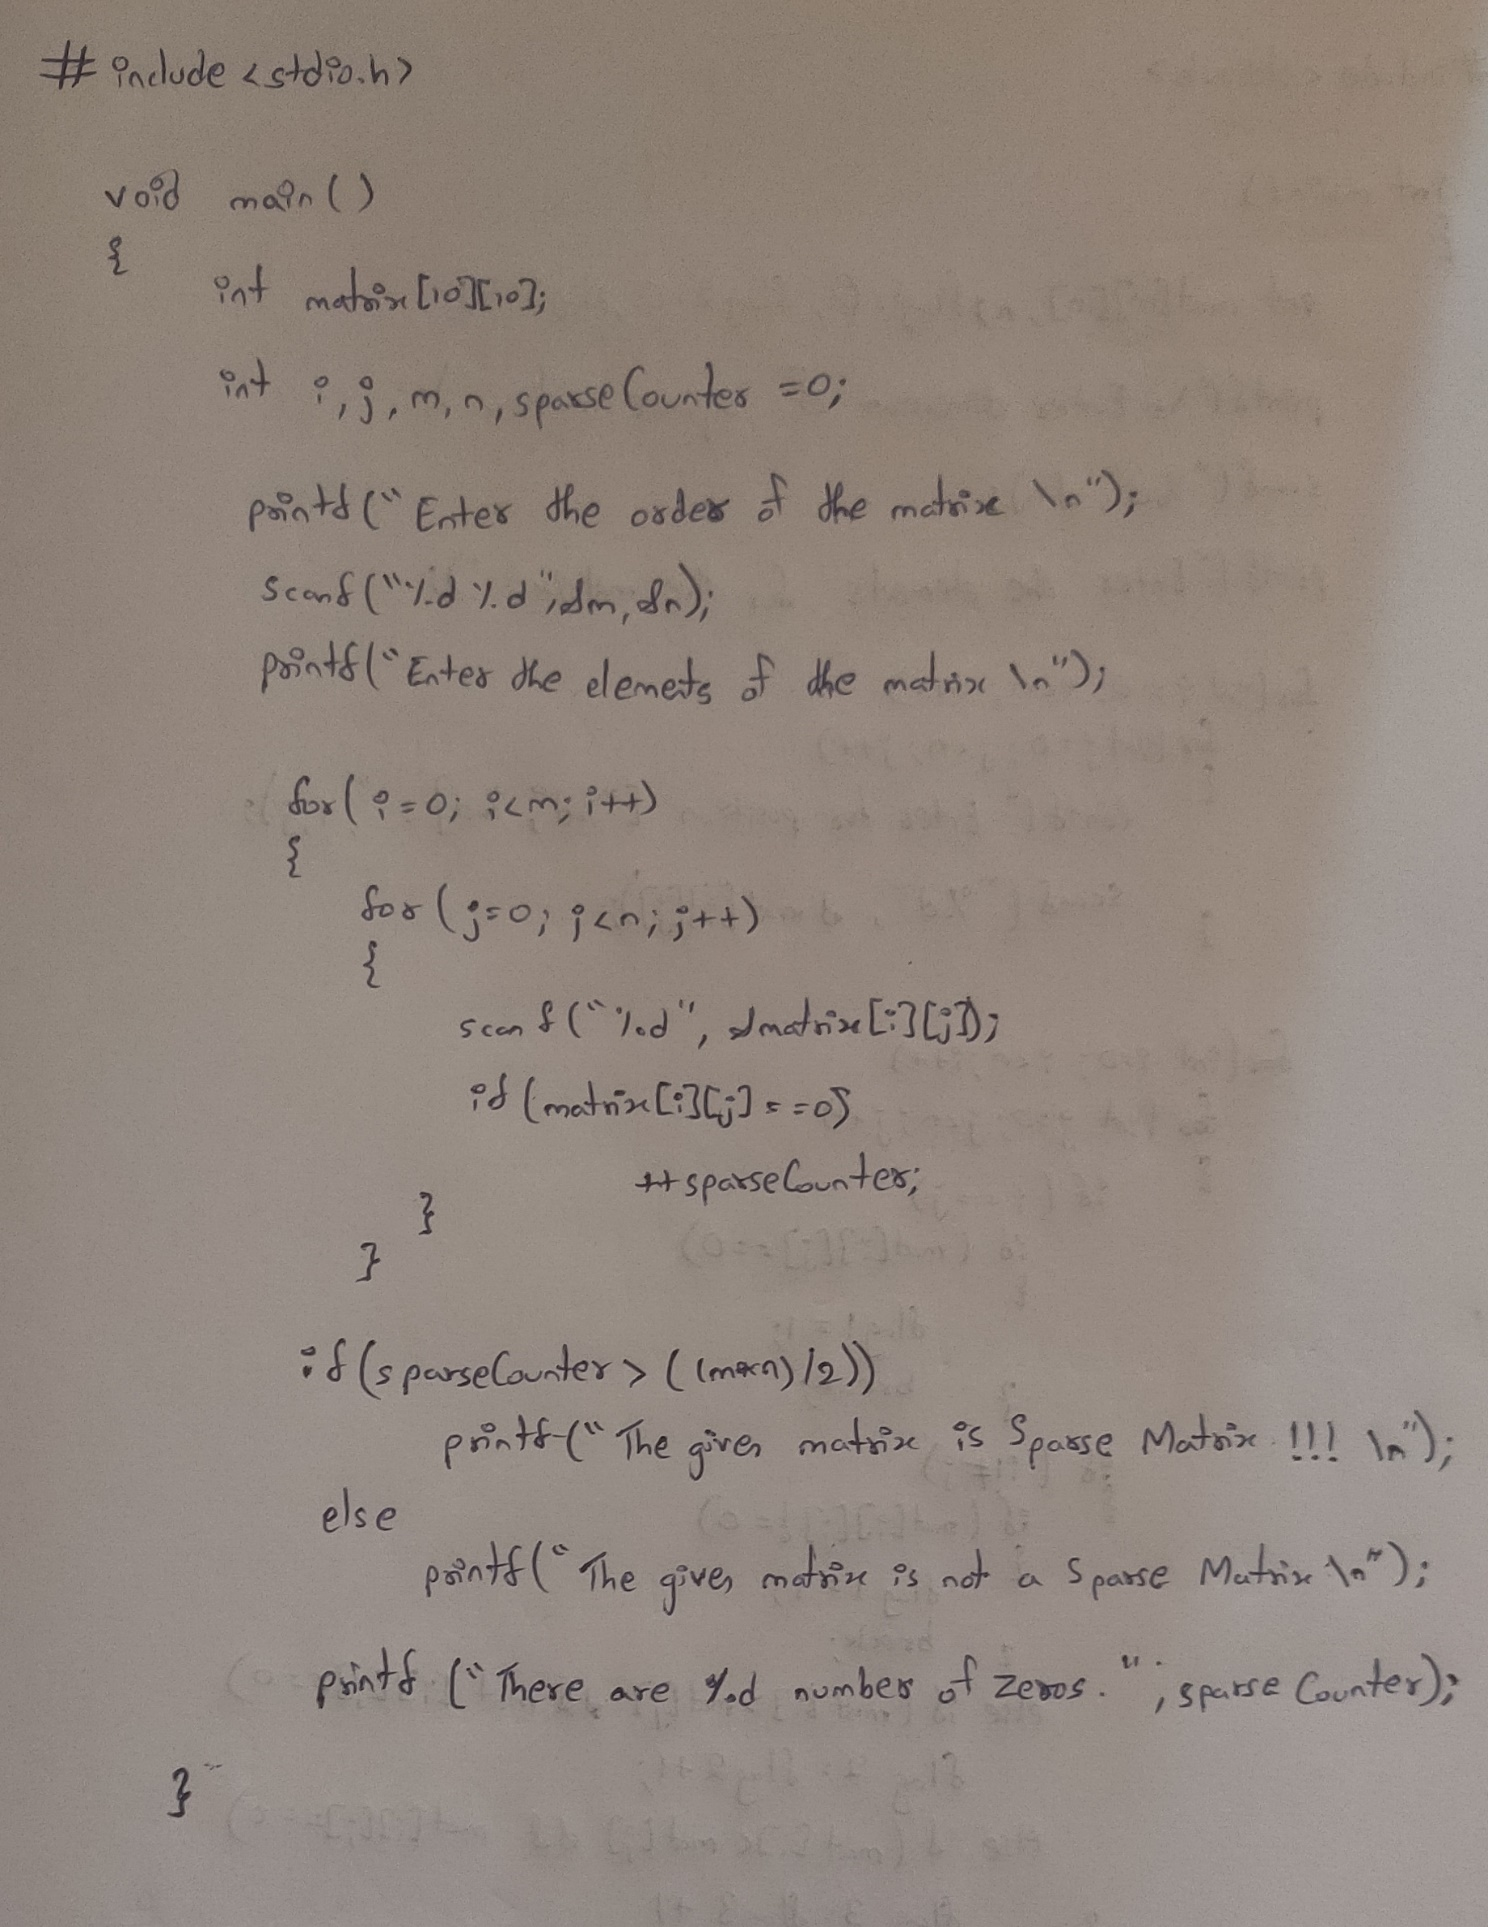 #include <stdio.h>
void main()
{
int matrix[10][10];
int i,j,m,n,sparseCounter =0;
printf("Enter the order of the matrix \n");
scanf("%d %d",&m,&n);
printf("Enter the elemets of the matrix \n");
for(i=0; i<m; i++)
{
for (j=0; j<n; j++)
{
scanf("%d", &matrix[i][j]);
if (matrix[i][j]==0)
++sparseCounter;
}
}
if(sparseCounter> ((m*n)/2))
printf("The given matrix is Sparse Matrix !!! \n");
else
printf("The given matrix is not a Sparse Matrix \n");
printf ("There are %d number of zeros.", sparseCounter);
}